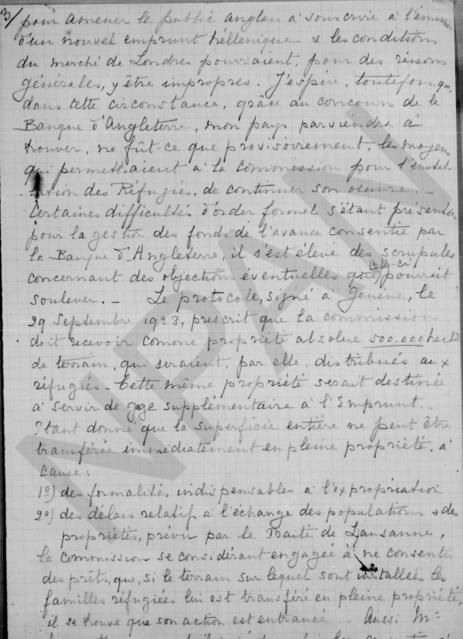 3/ pour amener le public anglais à souscrire à l'émission
d'un nouvel emprunt hellénique & les conditions
du marché de Londres pourraient, pour des raisons
générales, y être impropres. J'espère, toutefois, que,
dans cette circonstance, grâce au concours de la
Banque d'Angleterre, mon pays parviendra à
trouver, ne fût-ce que provisoirement, les moyens
qui permettraient à la Commission pour l'Instal-
lation des Réfugiés, de continuer son oeuvre. -
Certaines difficultés d'order formel s'étant présentées
pour la gestion des fonds de l'avance consentie par
la Banque d'Angleterre, il s'est élevé des scrupules
concernant des objection éventuelles que celle-ci pourrait
soulever. - Le protocole, signé à Genève, le
29 Septembre 1923, prescrit que la commission
doit recevoir comme propriété absolue 500.000 hect.
de terrain, qui seraient, par elle, distribués aux
réfugiés. Cette même propriété serait destinée
à servir de gage supplémentaire à l'Emprunt. -
Etant donné que la superficie entière ne peut être
transférée immédiatement en pleine propriété, à
cause:
1º) des formalités indispensables à l'expropriation
2º) des délais relatif à l'échange des populations & de
propriétés, prévu par le Traité de Lausanne,
la commission se considérant engagée à ne consentir
des prêts, que, si le terrain sur lequel sont installées les
familles réfugiées lui est transféré en pleine propriété,
il se trouve que son action est entravée. Aussi Mr
NPAN